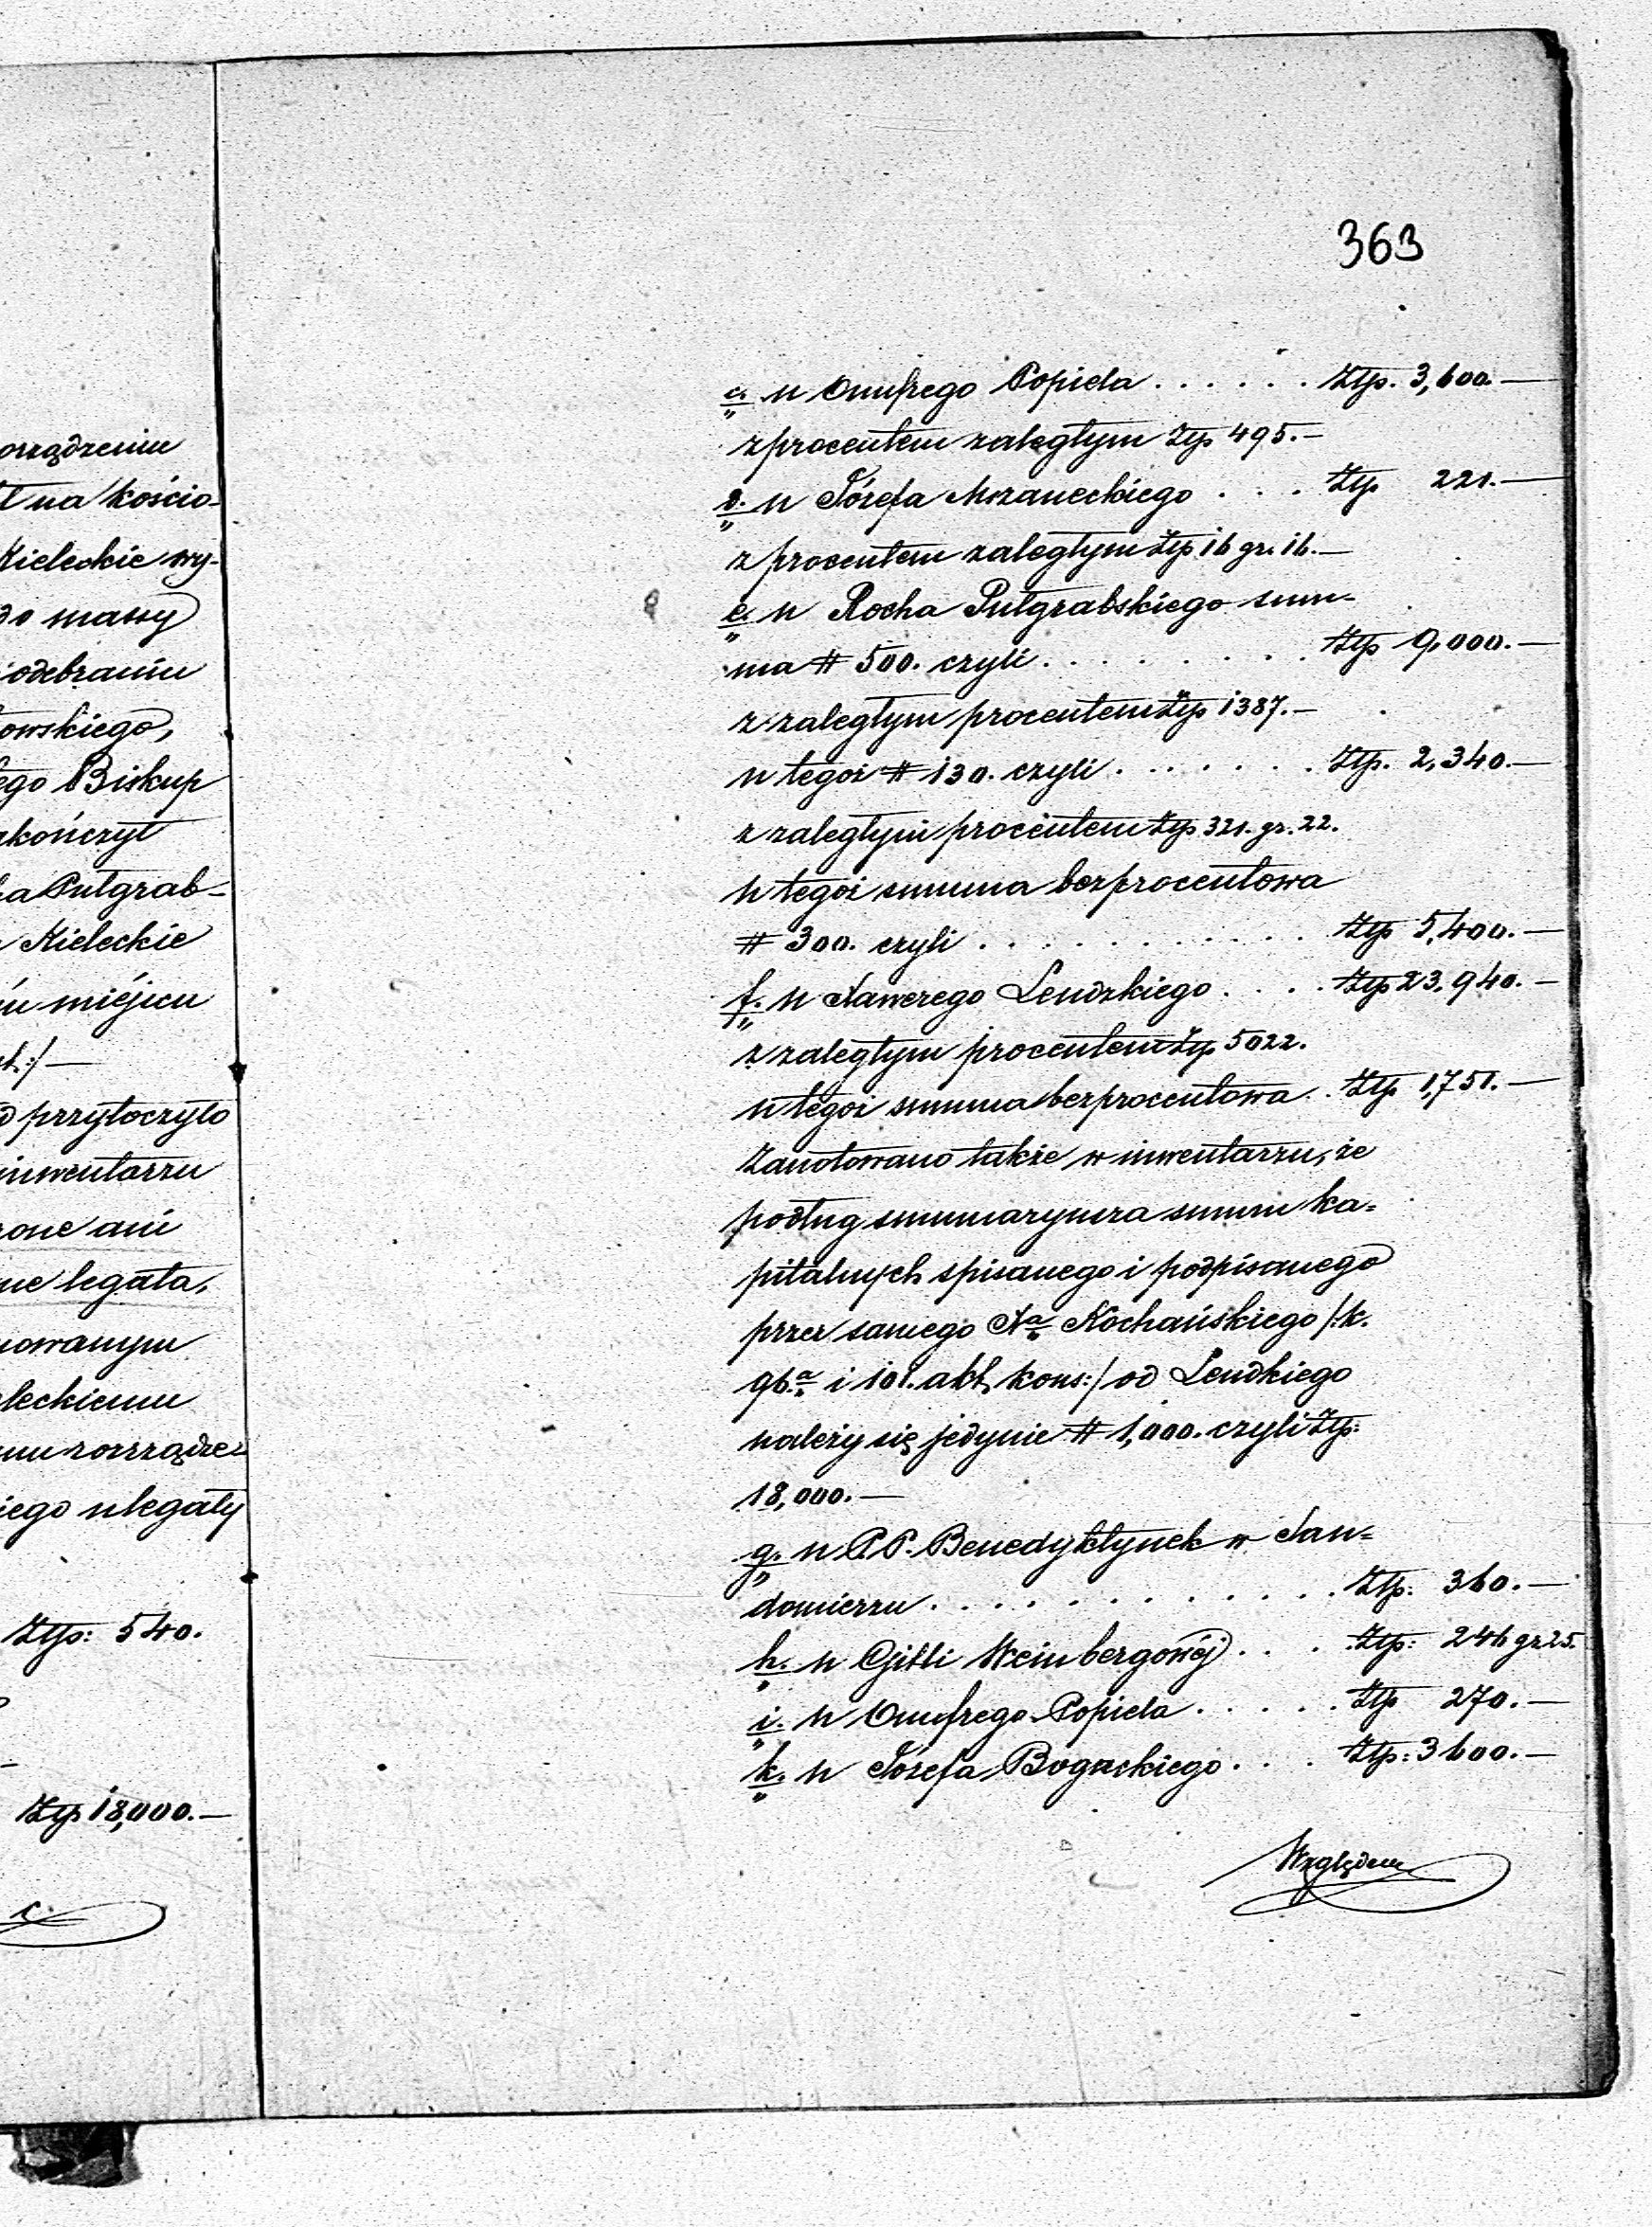 orządzeniu
ł na kościo-
Kieleckie wy-
do massy
odebraniu
owskiego,
ego Biskup
akończył
ha Pułgrab-
Kieleckie
miéjscu
kt:/ —
przytoczyło
inwentarzu
one ani
ne legata,
nowanym
leckiemu
mu rozrządze-
iego u legaty
Złp: 540.
Złp 18,000.—
c.
363
c. u Onufrego Popiela . . . . . . Złp. 3,600.—
z procentem zaległym Złp 495.—
d. u Józefa Mozaneckiego . . . Złp 221.—
z procentem zaległym Złp 16 gr. 16.—
e. u Rocha Pułgrabskiego sum-
ma # 500. czyli . . . . . . . . . Złp 9,000.—
z zaległym procentem Złp 1387.—
u tegoż # 130. czyli . . . . . . . Złp. 2,340.—
z zaległym procentem Złp 321. gr. 22.
u tegoż summa bezprocentowa
# 300. czyli . . . . . . . . . . . Złp 5,400.—
f. u Xawerego Lendzkiego . . . . Złp 23,940.—
z zaległym procentem Złp 5022.
u tegoż summa bezprocentowa . . Złp 1,751.—
Zanotowano także w inwentarzu, że
podług summaryusza summ ka=
pitalnych spisanego i podpisanego
przez samego Xa Kochańskiego /:k.
96.a i 101. akt, kons:/ od Lendkiego
należy się jedynie # 1,000. czyli Złp:
18,000.—
g. u P.P. Benedyktynek w San=
domierzu . . . . . . . . . . . . . Złp: 360.—
h. u Gitli Weinbergowéj . . . . Złp: 246 gr 25.
i. u Onufrego Popiela . . . . . Złp 270.—
k. u Józefa Boguckiego . . . . Złp: 3600.—
Względem